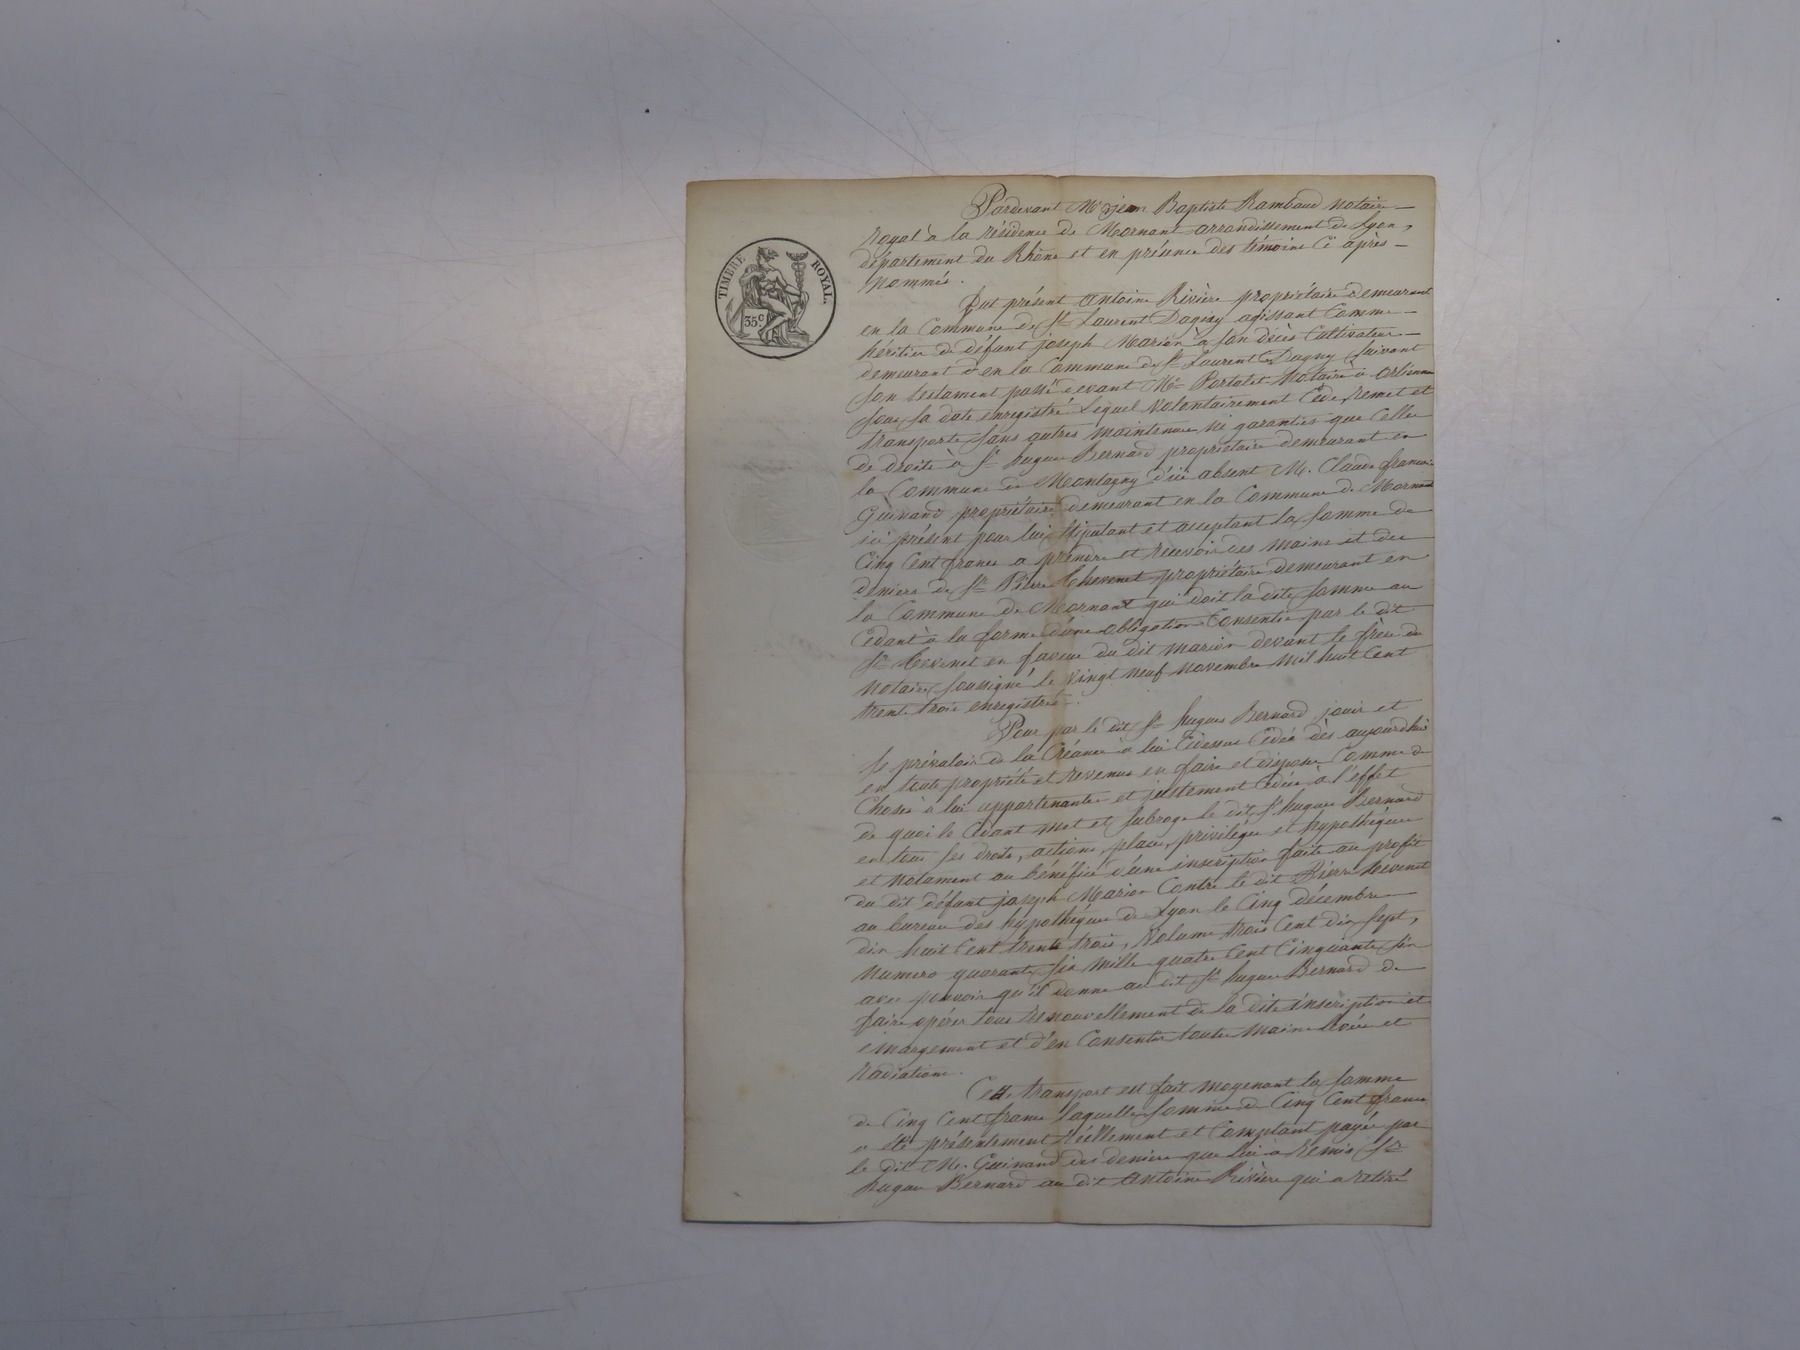 TIMBRE ROYAL.
35c.
Pardevant Me Jean Baptiste Rambaud notaire
royal à la résidence de Mornant arrondissement de Lyon,
département du Rhône et en présence des témoins ci après
nommés.
Fut présent Antoine Rivière propriétaire demeurant
en la Commune de St Laurent Dagny agissant Comme
héritier de défunt joseph Marion à son décès Cultivateur
demeurant en la Commune de St Laurent Dagny suivant
son testament passé devant Me Portalet Notaire à orlienas
sous sa date enregistré Lequel volontairement Cède, remet et
transporte sans autres maintenue ni garanties que Celles
de droits à Sr hugues Bernard propriétaire demeurant en
la Commune de Montagny d'ici absent M. Claude françois
Guinand propriétaire demeurant en la Commune de Mornant
ici présent pour lui stipulant et acceptant la somme de
Cinq Cent francs a prendre et recevoir des mains et des
deniers de Sr Pierre thevenet propriétaire demeurant en
la Commune de Mornant qui doit la dite somme au
Cédant à la forme d'une obligation Consentie par le dit
Sr tevenet en faveur du dit marion devant le frère du
notaire soussigné le vingt neuf novembre mil huit Cent
trente trois enregistrée.
Pour par le dit Sr hugues Bernard jouir et
se prévaloir de la Créance à lui Cidessus Cédée dès aujourdhui
en toute propriété et revenus en faire et disposer Comme de
Choses à lui appartenantes et justement Cédées à l'effet
de quoi le Cédant met et subroge le dit Sr hugues Bernard
en tous ses droits, actions, places, privilèges et hypothèques
et notament au bénéfice d'une inscription faite au profit
du dit défunt joseph Marion Contre le dit Pierre thevenet
au bureau des hypothèques de Lyon le Cinq décembre
dix huit Cent trente trois, Volume trois Cent dix sept,
Numero quarante six mille quatre Cent Cinquante six
avec pouvoir qu'il donne au dit Sr hugues Bernard de
faire opérer tous renouvellement de la dite inscription et
émargement et d'en Consentir toutes mains levées et
radiations.
Cette transport est fait moyenant la somme
de Cinq Cent francs laquelle somme de Cinq Cent francs
a été présentement réellement et Comptant payée par
le dit M. Guinand des deniers que lui a remis Sr
hugues Bernard au dit Antoine Rivière qui a retiré